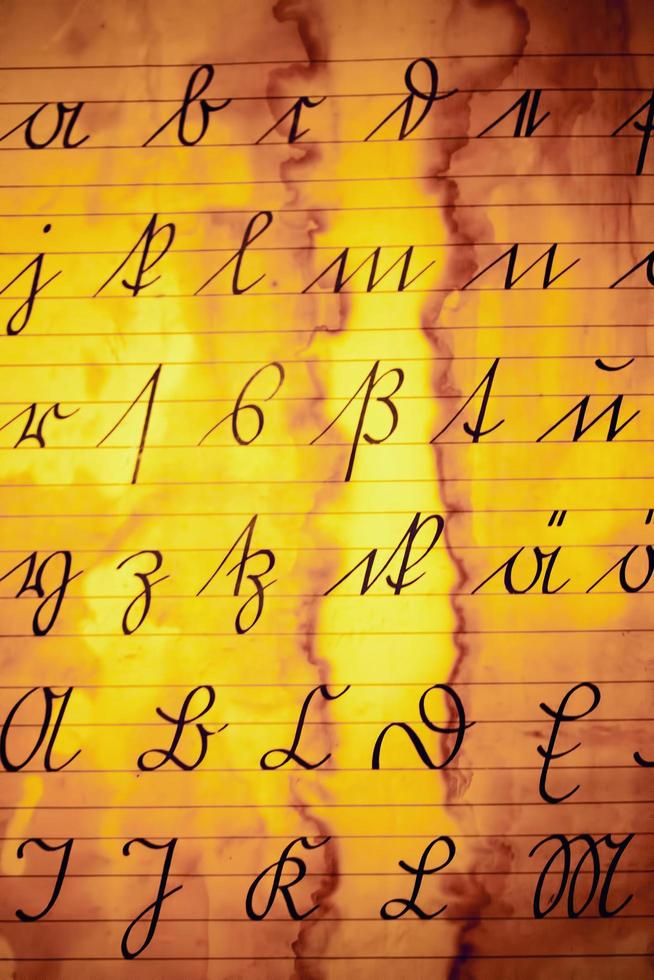 a b c d e f
j k l m n o
r ſ s ß t u
y z tz ck ä ö
A B C D E
I J K L M